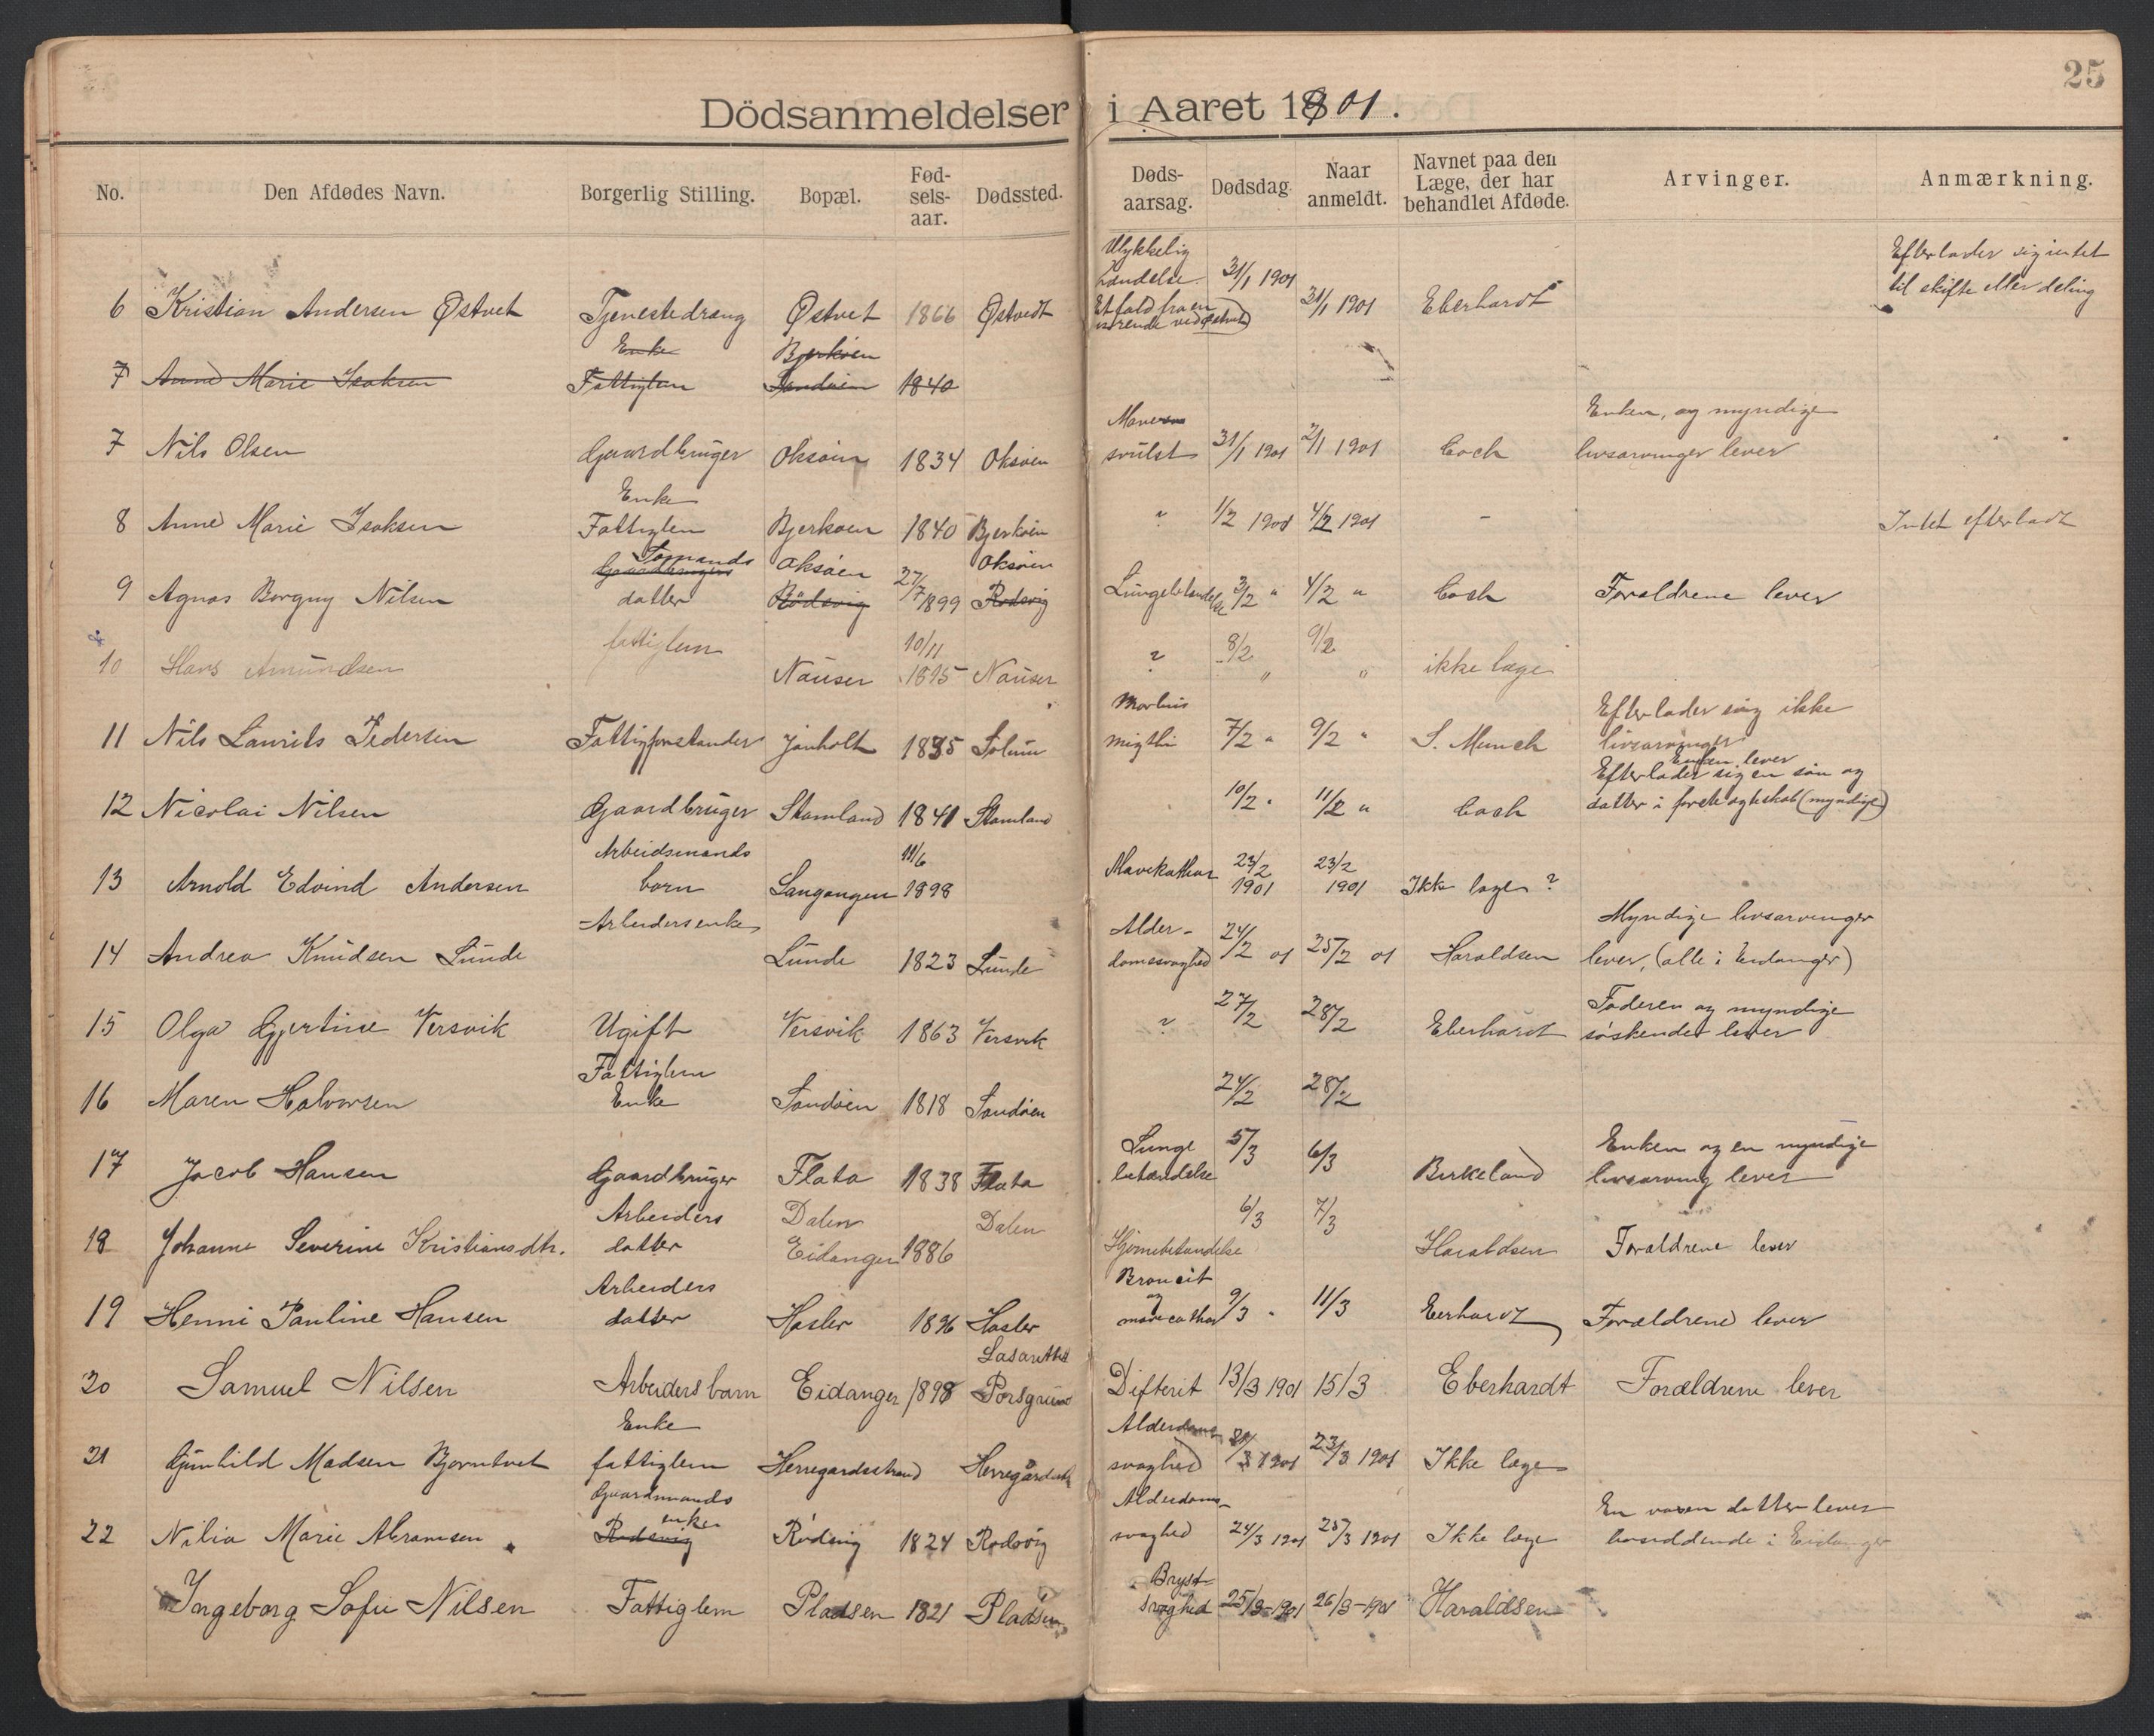 25
Dödsanmeldelser i Aaret 1901.
No. Den Afdødes Navn. Borgerlig Stilling. Bopæl. Fød-sels-aar. Dødssted. Døds-aarsag. Dødsdag. Naar anmeldt. Navnet paa den Læge, der har behandlet Afdøde. Arvinger. Anmærkning.
6 Kristian Andersen Østvet Tjenestedreng Østvet 1866 Østvedt Ulykkelig hændelse. Et fald fra en ved Østvedt 31/1 1901 31/1 1901 Eberhardt Efterlader sig intet til skifte eller deling
7 Anne Marie Isaksen Enke Fattiglem Bjerkøen Sandøen 1840
7 Nils Olsen Gaardbruger Oksøien 1834 Oksøen Mave svulst 31/1 1901 2/1 1901 Coch Enken, og myndige livsarvinger lever " "
8 Anne Marie Isaksen Enke Fattiglem Bjerkøen 1840 Bjerkøen ? 1/2 1901 4/2 1901 - Intet efterladt
9 Agnes Borgny Nilsen Gaardbrugers Sømands datter Oksøen Rødsvig 27/7 1899 Oksøien Rødsvig Lungebetændelse 3/2 " 4/2 " Coch Forældrene lever
10 Hans Amundsen fattiglem Nauser 10/11 1895 Nauser ? 8/2 " 9/2 " ikke læge
11 Nils Laurits Pedersen Fattigforstander Jønholt 1835 Solum Morbus 7/2 " 9/2 " S. Munch Efterlader sig ikke livsarvinger Enken lever
12 Nicolai Nilsen Gaardbruger Stamland 1841 Stamland 10/2 " 11/2 " Coch Efterlader sig en søn og datter i første ægteskab (myndige)
13 Arnold Edvind Andersen Arbeidsmands barn Langangen 11/6 1898 Mavekathar 23/2 1901 23/2 1901 Ikke læge ?
14 Andrea Knudsen Lunde Arbeidersenke Lunde 1823 Lunde Alder-domssvaghed 24/2 01 25/2 01 Haraldsen Myndige livsarvinger lever, (alle i Eidanger)
15 Olga Gjertine Versvik Ugift Versvik 1863 Versvik ? 27/2 28/2 Eberhardt Faderen og myndige søskender lever
16 Maren Halvorsen Fattiglem Enke Sandøen 1818 Sandøen 24/2 28/2
17 Jacob Hansen Gaardbruger Flata 1838 Flata Lunge betændelse 5/3 6/3 Birkeland Enken og en myndige livsarving lever
18 Johanne Severine Kristiansdtr. Arbeiders datter Dalen Eidanger 1886 Dalen Hjernebetændelse 6/3 7/3 Haraldsen Forældrene lever
19 Henni Pauline Hansen Arbeiders datter Hasler 1896 Hasler Broncit og mavecathar 9/3 " 11/3 Eerhardt Forældrene lever
20 Samuel Nilsen Arbeidersbarn Eidanger 1898 Lasarettet Porsgrund Difterit 13/3 1901 15/3 Eberhardt Forældrene lever
21 Gunhild Madsen Bjørntvet Enke fattiglem Herregardsstrand Herregårdsstr Alderdoms svaghed 21/3 1901 23/3 1901 Ikke læge
22 Nilia Marie Abramsen Gaardmands enke Rødsvig Rødsvig 1824 Rødsvig Alderdoms-svaghed 24/3 1901 25/3 1901 Ikke læge En voxen datter lever bosiddende i Eidanger
Ingeborg Sofie Nilsen Fattiglem Pladsen 1821 Pladsen Bryst-svaghed 25/3-1901 26/3-1901 Haraldsen